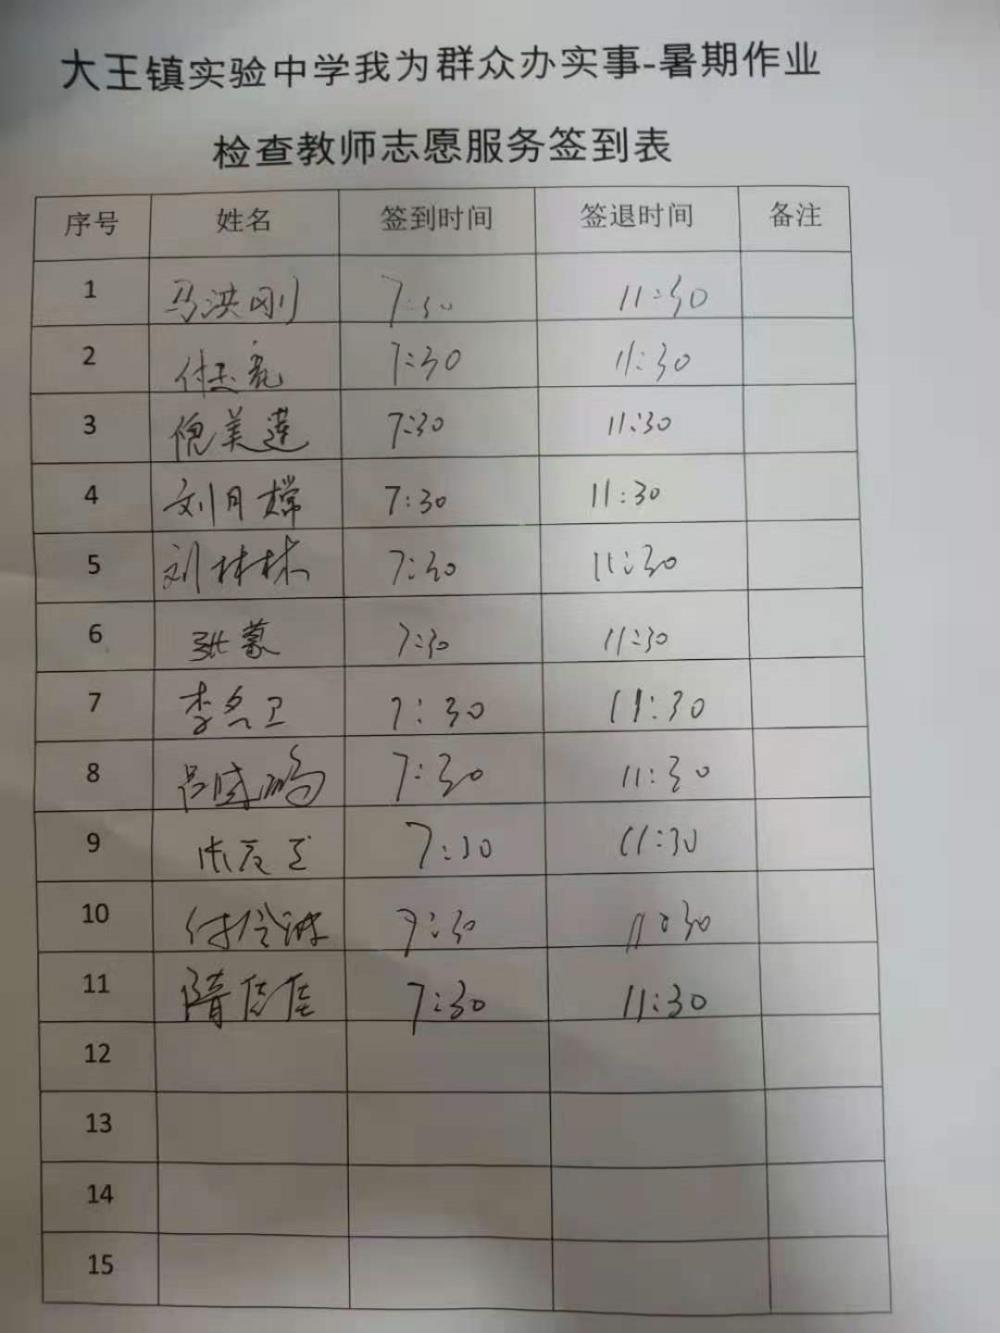 大王镇实验中学我为群众办实事-暑期作业
检查教师志愿服务签到表
序号 姓名 签到时间 签退时间 备注
1 马洪刚 7:30 11:30
2 7:30 11:30
3 倪美莲 7:30 11:30
4 刘月嫦 7:30 11:30
5 刘林林 7:30 11:30
6 张蒙 7:30 11:30
7 李名卫 7:30 11:30
8 吕盛鸿 7:30 11:30
9 7:30 11:30
10 7:30 11:30
11 隋佳佳 7:30 11:30
12
13
14
15